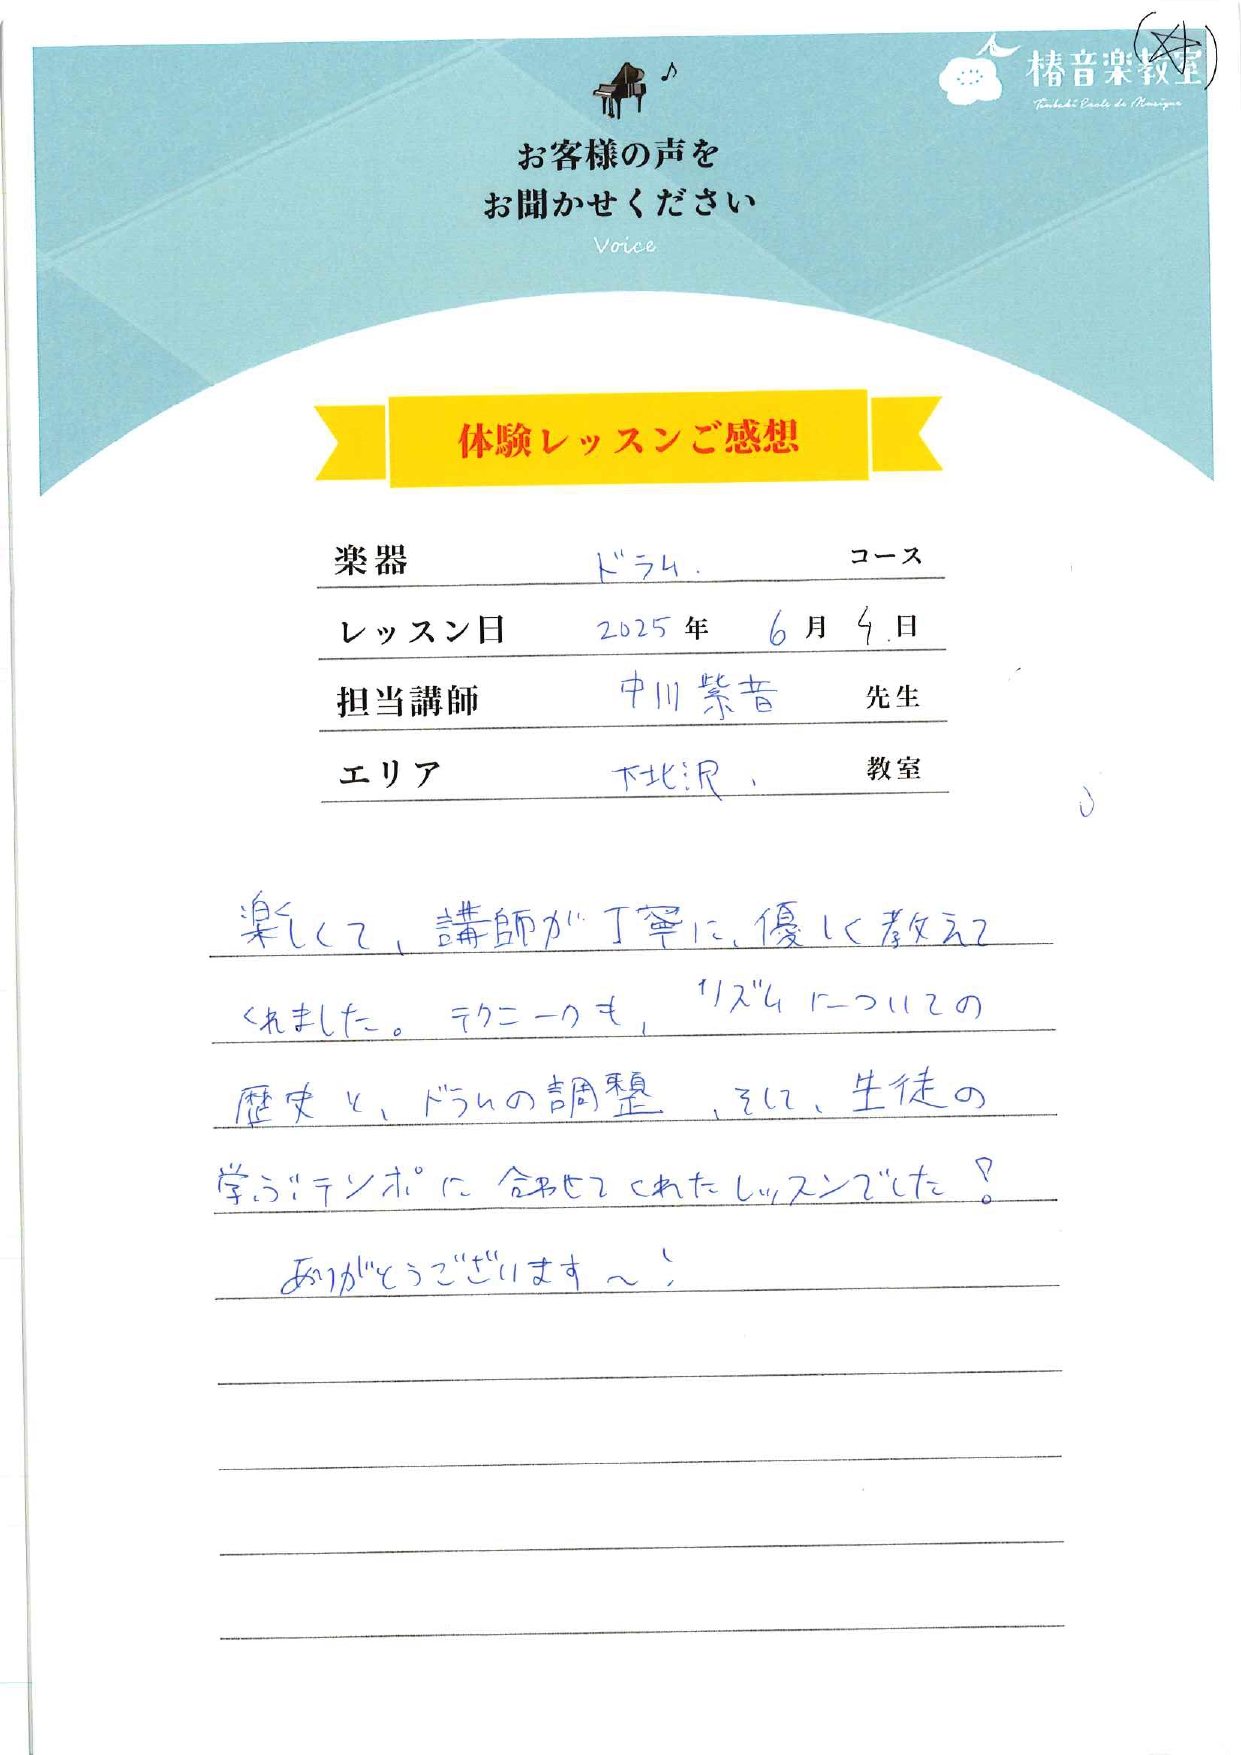 椿音楽教室
Tsubaki Ecole de Musique
お客様の声を
お聞かせください
Voice
体験レッスンご感想
楽器 ドラム. コース
レッスン日 2025 年 6 月 4 日
担当講師 中川紫音 先生
エリア 下北沢、 教室
楽しくて、講師が丁寧に、優しく教えて
くれました。テクニークも、リズムについての
歴史と、ドラムの調整、そして、生徒の
学ぶテンポに合わせてくれたレッスンでした!
ありがとうございます〜!